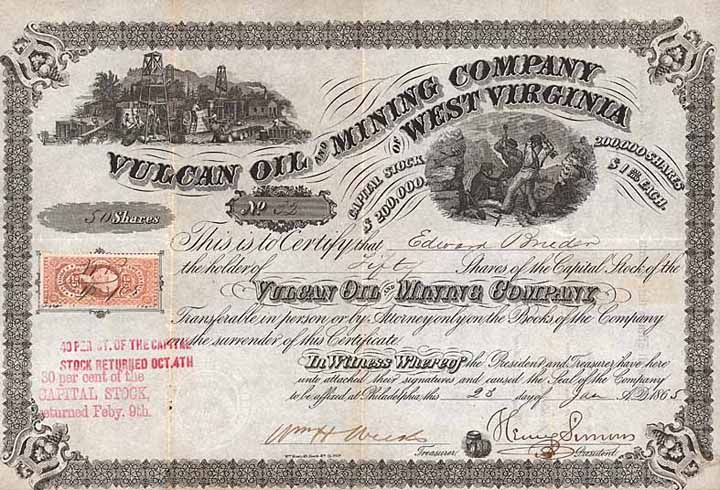 VULCAN OIL AND MINING COMPANY
OF WEST VIRGINIA
CAPITAL STOCK
$200,000.
200,000 SHARES
$1 EACH.
50 Shares
No 52
This is to Certify that Edward
the holder of Fifty Shares of the Capital Stock of the
VULCAN OIL AND MINING COMPANY
Transferable in person or by Attorney only on the Books of the Company
on the surrender of this Certificate
In Witness Whereof the President and Treasurer have here
unto attached their signatures and caused the Seal of the Company
to be affixed at Philadelphia, this 23 day of Jan A.D. 1865
40 PER CT. OF THE CAPITAL
STOCK RETURNED OCT. 4TH
30 per cent of the
CAPITAL STOCK,
returned Feby. 9th.
Wm H Weeks
Treasurer
Henry Simons
President